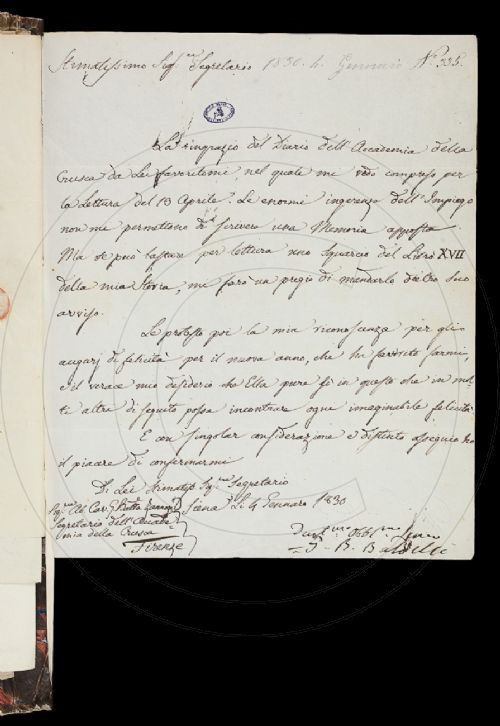 Stimatissimo Sig.re Segretario 1830. 4. Gennaio N.° 335.
La ringrazio del Diario dell'Accademia della
Crusca da Lei favoritomi nel quale mi vedo compreso per
la Lettura del 13 Aprile. Le enormi ingerenze dell'Impiego
non mi permettono di scrivere una Memoria apposta.
Ma se può bastare per lettura uno Squarcio del Libro XVII
della mia Storia, mi farò un pregio di mandarlo dietro suo
avviso.
Le protesto poi la mia riconoscenza per gli
augurj di felicità per il nuovo anno, che ha favorito farmi,
ed il verace mio desiderio che Ella pure sì in questo che in mol-
ti altri di seguito possa incontrare ogni imaginabile felicità.
E con singolar considerazione e distinto ossequio ho
il piacere di confermarmi
Di Lei Stimatiss. Sig.re Segretario
Siena Li 4 Gennaro 1830
Sig.re Ab. Cav.
Segretario dell'Accade-
mia della Crusca
Firenze
J. B. Baldelli